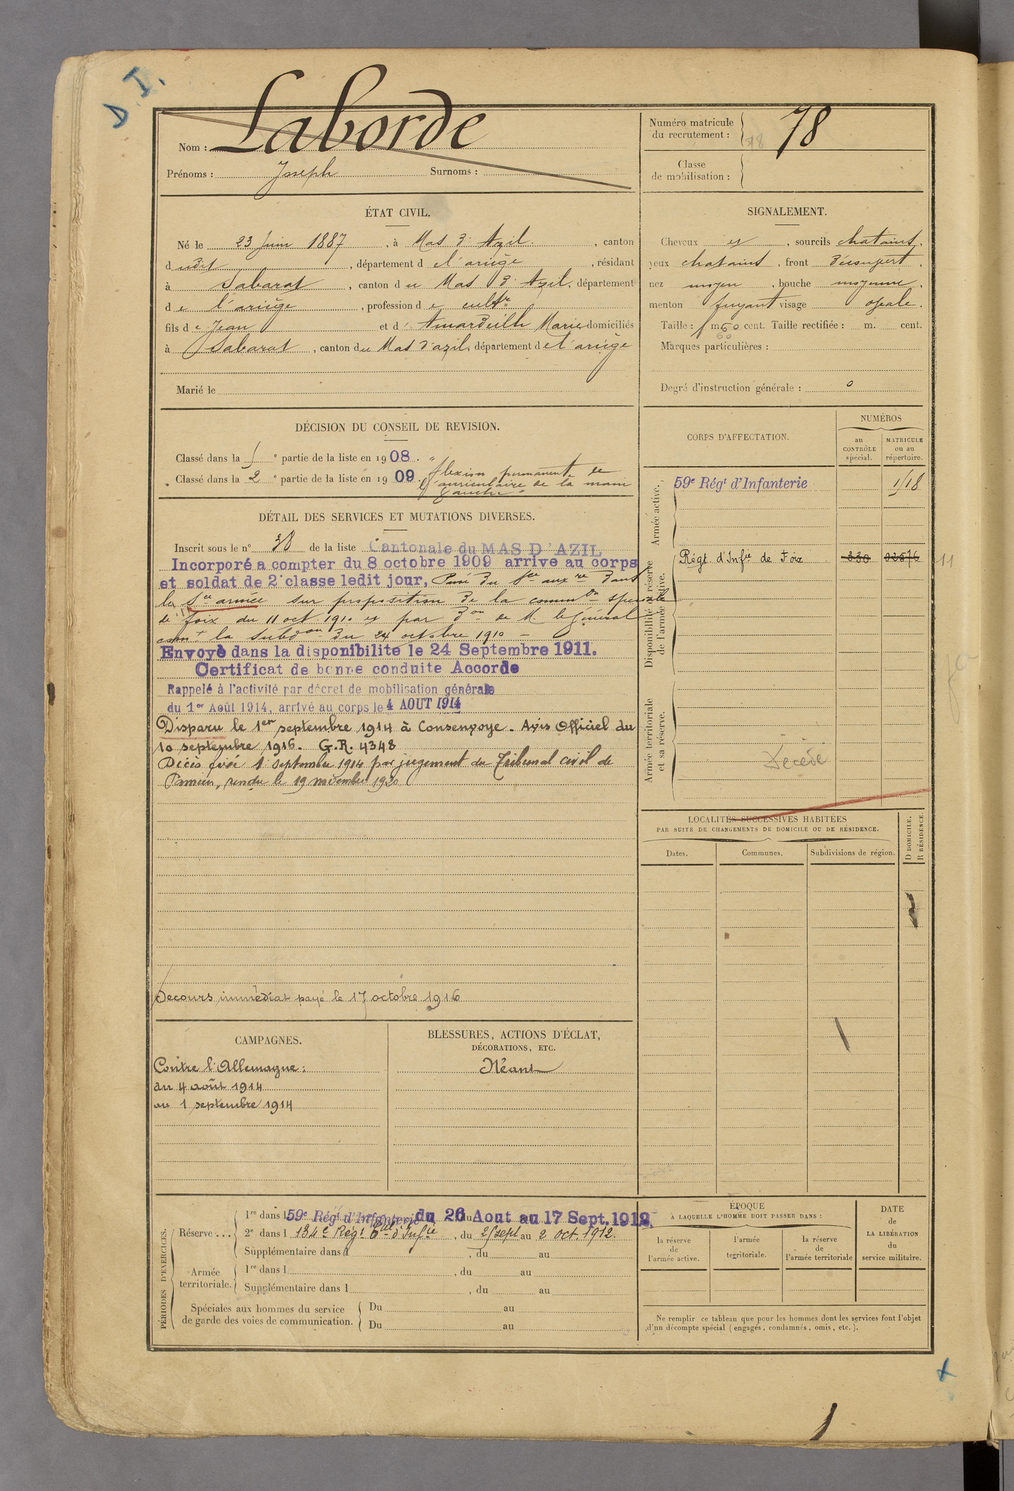 D. I.
Nom : Laborde
Prénoms : Joseph Surnoms :
Numéro matricule du recrutement : 78
78
Classe de mobilisation :
ÉTAT CIVIL.
Né le 23 Juin 1887, à Mas d'Azil, canton
dudit, département d e l'ariège, résidant
à Sabarat, canton d u Mas d'Azil, département
d e l'ariège, profession d e cultr
fils d e Jean et d' Amardeilh Marie domiciliés
à Sabarat, canton du Mas d'azil, département de l'ariège
Marié le
SIGNALEMENT.
Cheveux et, sourcils chatains,
yeux chatains, front découvert,
nez moyen, bouche moyenne,
menton fuyant visage ovale.
Taille : 1 m 60 cent. Taille rectifiée : m. cent.
Marques particulières :
Degré d'instruction générale : 0
DÉCISION DU CONSEIL DE REVISION.
Classé dans la 1 e partie de la liste en 1908.
Classé dans la 2 e partie de la liste en 1909. flexion permanente de
l'auriculaire de la main
gauche
DÉTAIL DES SERVICES ET MUTATIONS DIVERSES.
Inscrit sous le n° 38 de la liste Cantonale du MAS D'AZIL
Incorporé a compter du 8 octobre 1909 arrive au corps
et soldat de 2e classe ledit jour, Passé du sce aux re dans
le Sce armée sur proposition de la common spéciale
de Foix du 11 oct. 1910 et par don de M. le Général
comt la Subdon du 24 octobre 1910
Envoyé dans la disponibilite le 24 Septembre 1911.
Certificat de bonne conduite Accorde
Rappelé à l'activité par décret de mobilisation générale
du 1er Août 1914, arrivé au corps le 4 AOUT 1914
Disparu le 1er septembre 1914 à Consenvoye. Avis Officiel du
10 septembre 1916. G.R. 4348
Décès fixé 1 septembre 1914 par jugement du Tribunal civil de
Pamiers, rendu le 19 novembre 1920
Secours immédiat payé le 17 octobre 1916
CORPS D'AFFECTATION.
NUMÉROS
au CONTRÔLE spécial.
MATRICULE ou au répertoire.
Armée active.
59e Régt d'Infanterie 1/18
Disponibilité et réserve de l'armée active.
Régt d'Infie de Foix
11
Armée territoriale et sa réserve.
Décédé
LOCALITÉS SUCCESSIVES HABITÉES
PAR SUITE DE CHANGEMENTS DE DOMICILE OU DE RÉSIDENCE.
Dates.
Communes.
Subdivisions de région.
D DOMICILE. R RÉSIDENCE.
CAMPAGNES.
Contre l'Allemagne :
du 4 août 1914
au 1 septembre 1914
BLESSURES, ACTIONS D'ÉCLAT,
DÉCORATIONS, ETC.
Néant
PÉRIODES D'EXERCICES.
Réserve....
1re dans l 59e Régt d'Infanterie du 26 Aout au 17 Sept. 1912
2e dans l 134e Régt d'Infie, du 2/sept au 2 oct. 1912.
Supplémentaire dans l, du au
Armée territoriale.
1re dans l, du au
Supplémentaire dans l, du au
Spéciales aux hommes du service
de garde des voies de communication.
Du au
Du au
EPOQUE
À LAQUELLE L'HOMME DOIT PASSER DANS :
la réserve de l'armée active.
l'armée territoriale.
la réserve de l'armée territoriale
DATE de LA LIBÉRATION du service militaire.
Ne remplir ce tableau que pour les hommes dont les services font l'objet
d'un décompte spécial (engagés, condamnés, omis, etc.).